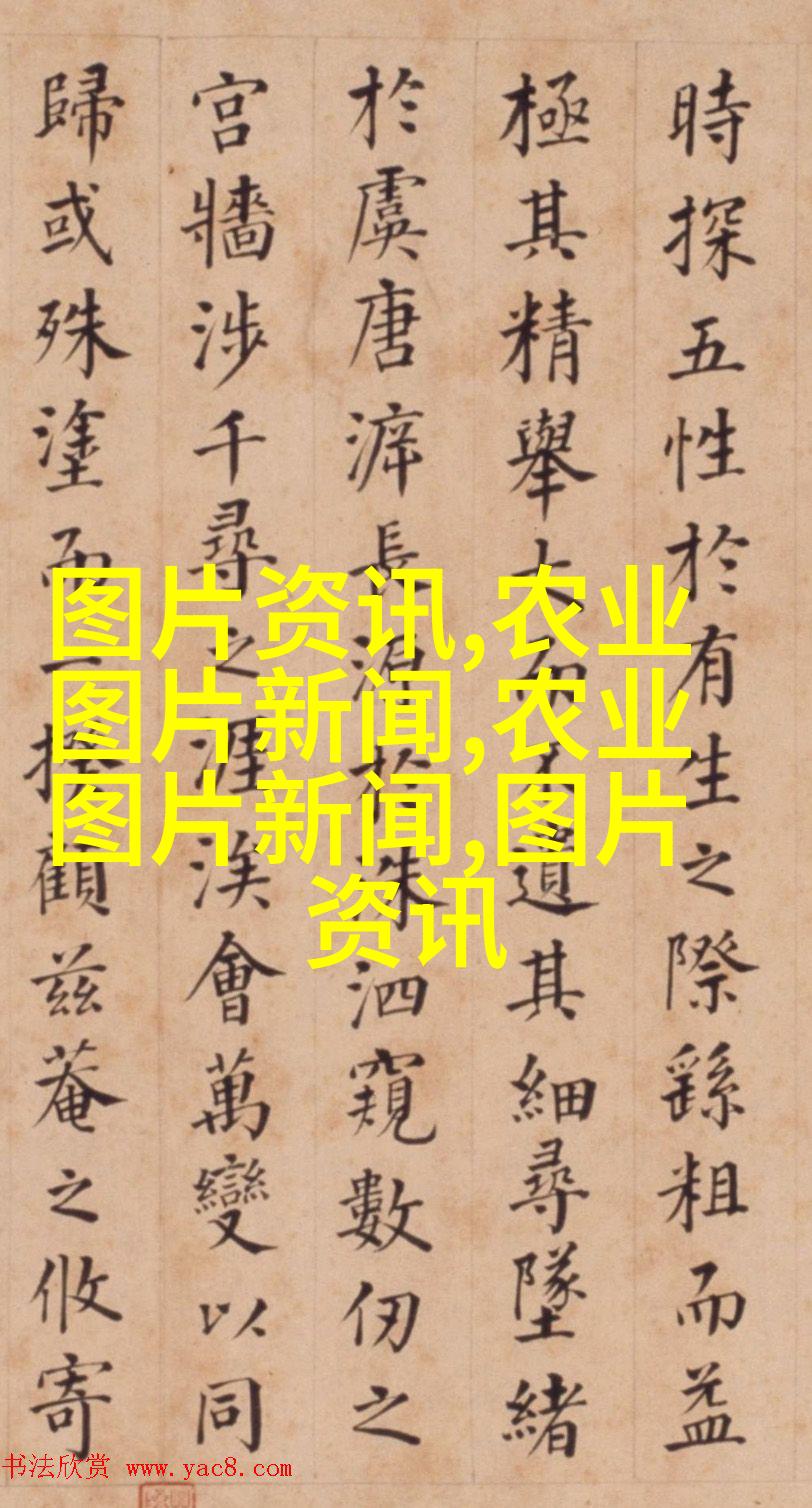 時探五性於有生之際繇粗而益
極其精舉大而不遺其細尋墜緒
於虞唐泝長源於洙泗窺數仞之
宮牆涉千尋之涯涘會萬變以同
歸或殊塗而一揆顧茲菴之攸寄
图片资讯,农业
图片新闻,农业
图片新闻,图片
资讯
书法欣赏 www.yac8.com